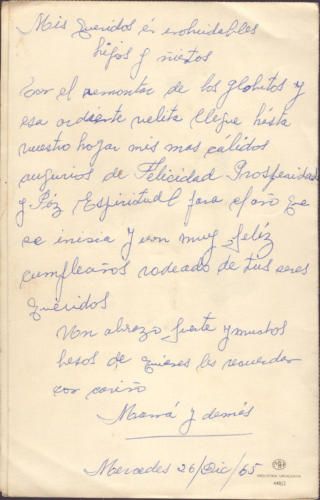 Mis queridos é inolvidables
hijos y nietos
Por el remontar de los globitos y
esa ardiente velita llegue hásta
vuestro hogar mis mas cálidos
augurios de Felicidad Prosperidad
y Páz Espiritual para el año que
se inisia y un muy felíz
cumpleaños rodeado de tus seres
queridos
Un abrazo fuerte y muchos
besos de quienes les recuerdan
con cariño
Mamá y demás
Mercedes 26/Dic/65
INDUSTRIA URUGUAYA